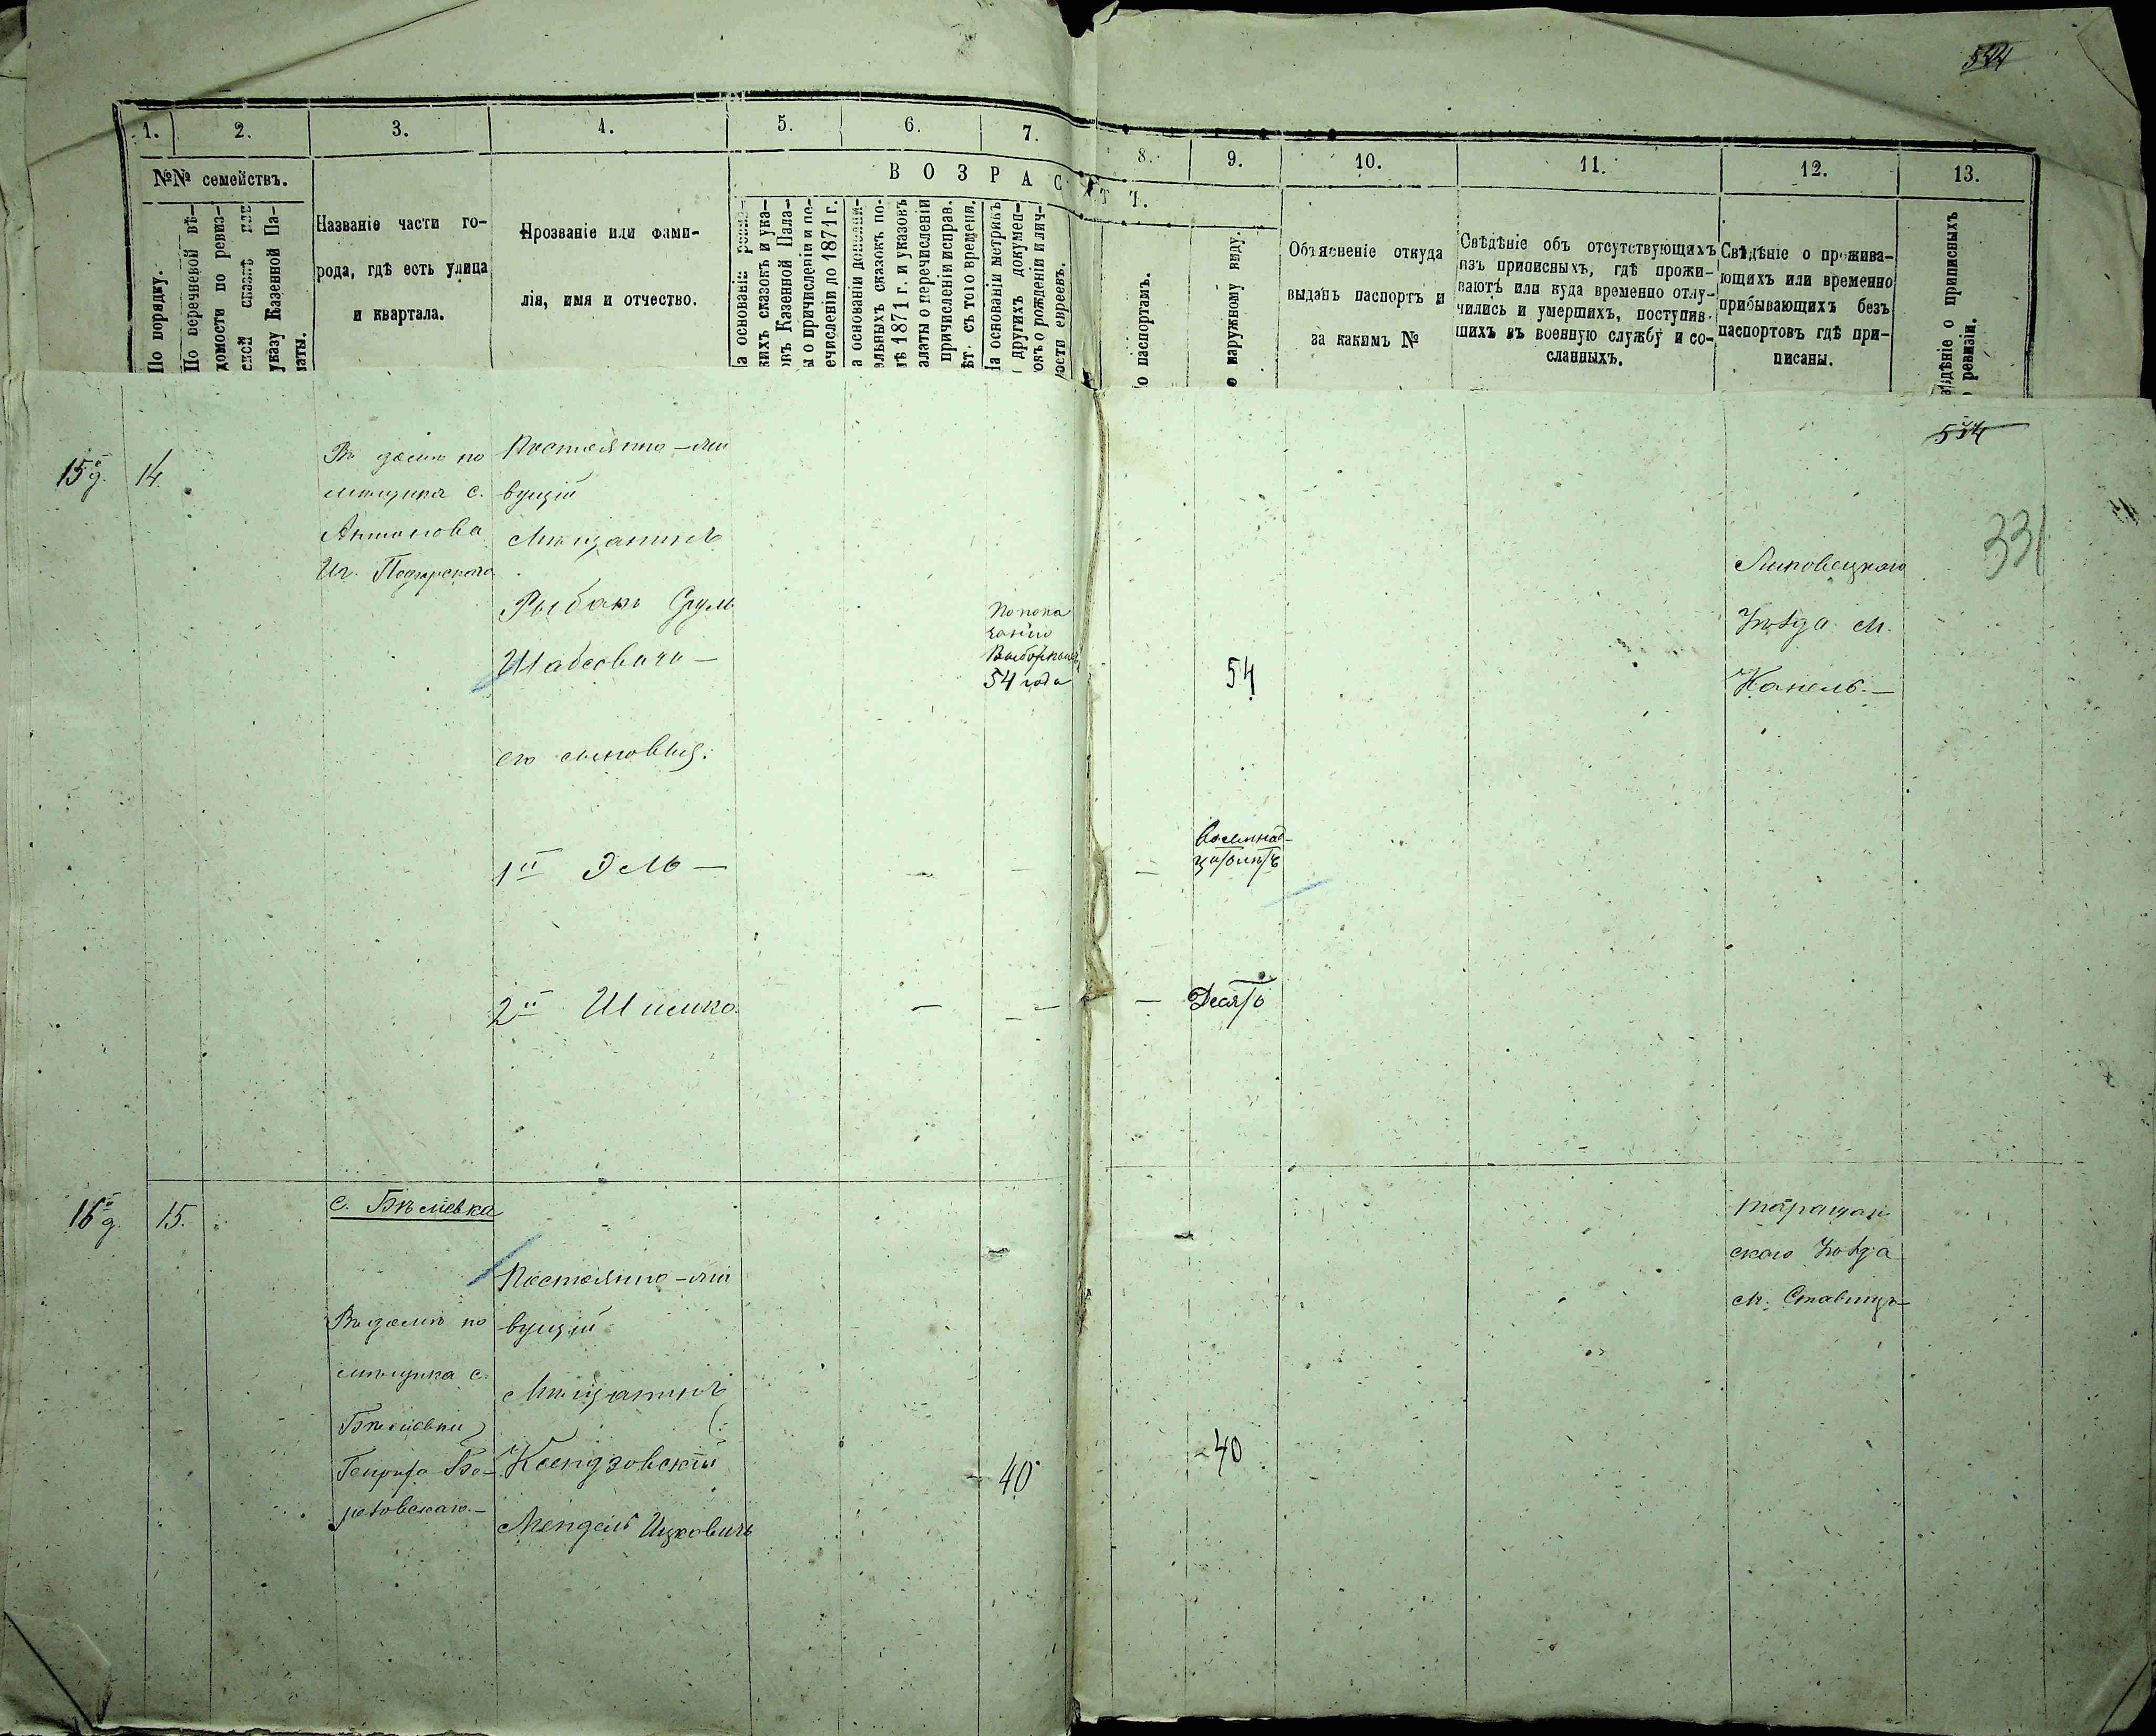 544
1. 2. 3. 4. 5. 6. 7. 8. 9. 10. 11. 12. 13.
№№ семействъ.
По порядку.
По перечневой вѣ-
домости по ревиз-
ской сказкѣ или
указу Казенной Па-
латы.
Названіе части го-
рода, гдѣ есть улица
и квартала.
Прозваніе или фами-
лія, имя и отчество.
ВОЗРАСТЪ.
а основаніи ревиз-
кихъ сказокъ и ука-
овъ Казенной Пала-
ы о причисленіи и пе-
ечисленіи до 1871 г.
а основаніи дополни-
ельныхъ сказокъ по-
лѣ 1871 г. и указовъ
алаты о перечисленіи
причисленіи исправ.
ѣт. съ того времени.
На основаніи метрикъ
и другихъ докумен-
овъ о рожденіи и лич-
ности евреевъ.
о паспортамъ.
о наружному виду.
Объясненіе откуда
выданъ паспортъ и
за какимъ №
Свѣдѣніе объ отсутствующихъ
изъ приписныхъ, гдѣ прожи-
ваютъ или куда временно отлу-
чились и умершихъ, поступив-
шихъ въ военную службу и со-
сланныхъ.
Свѣдѣніе о прожива-
ющихъ или временно
прибывающихъ безъ
паспортовъ гдѣ при-
писаны.
ѣдѣніе о приписныхъ
ревизіи.
534
331
15й д. 14.
Въ домѣ по
мѣщика с.
Антонова
Иг. Подгорского
Постоянно-жи
вущій
Мѣщанинъ
Рыбакъ Сруль
Шабсовичъ —
По пока
занію
54 года
54
Липовецкаго
Уѣзда м.
Конелъ. —
его сыновья:
1й Эль —
Восемнад-
цать лѣтъ
2й Шимко
Десять
16й д. 15.
с. Бѣліевка
Въ домѣ по
мѣщика с.
Бѣліевки
Постоянно-жи
вущій
Мѣщанинъ
Ксендзовскій
Мендель Ицковичъ
40
40
Таращан
скаго Уѣзда
м. Ставищъ —